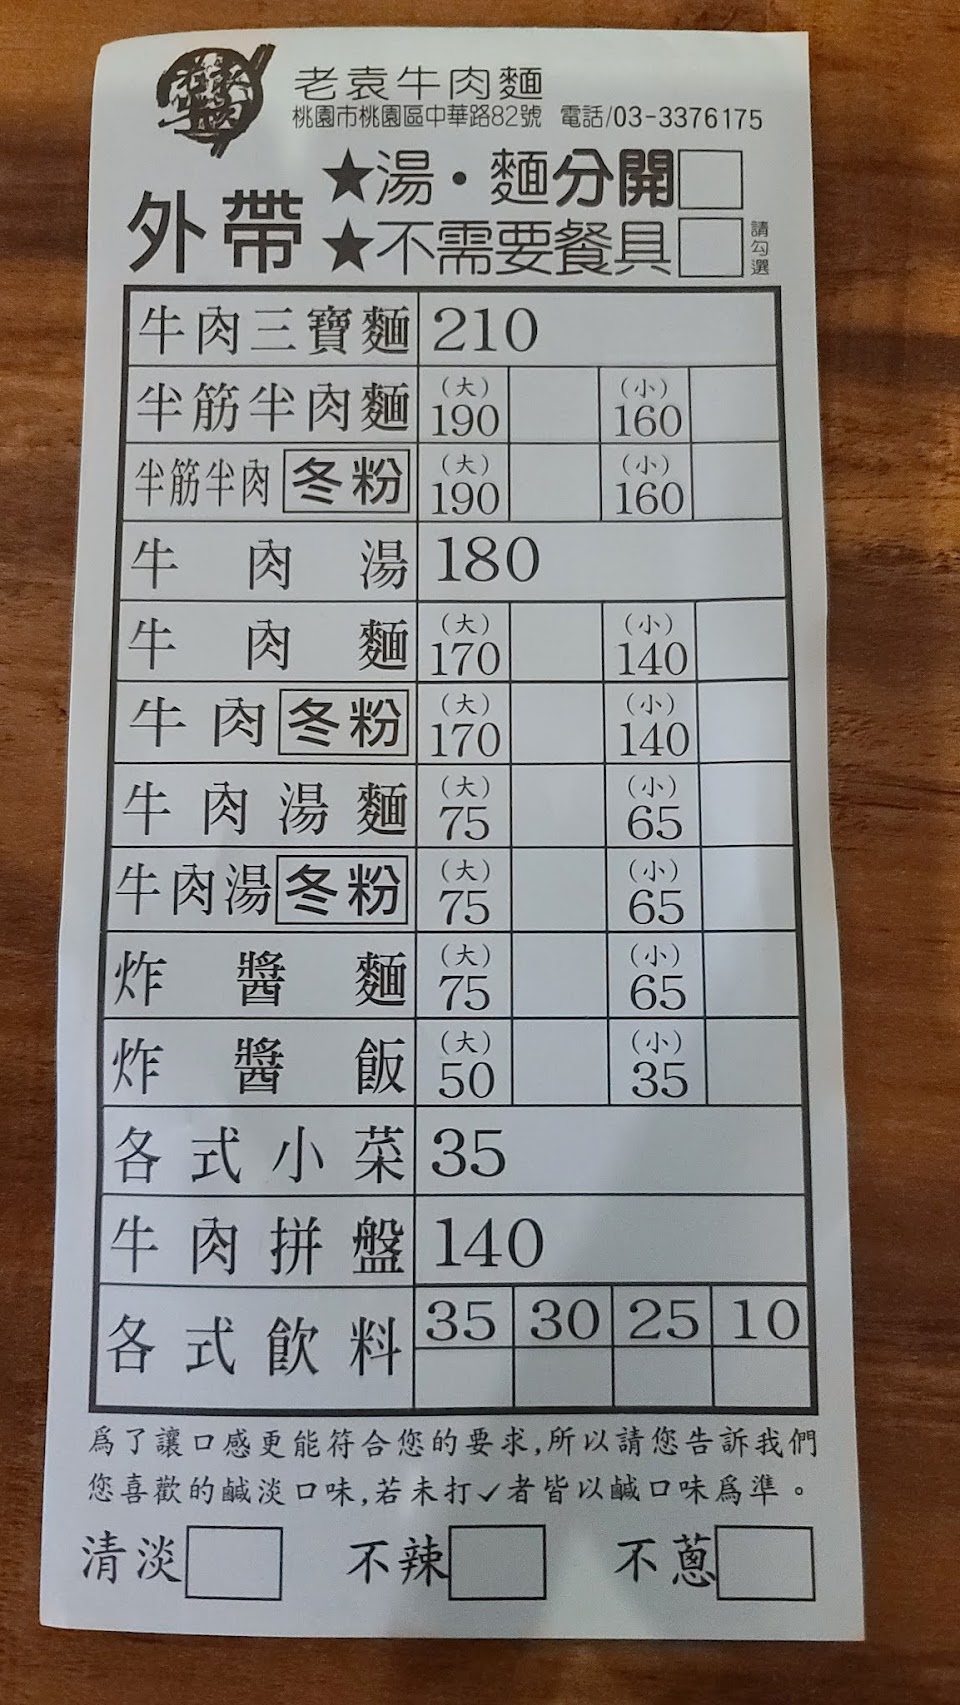 老袁牛肉麵
桃園市桃園區中華路82號 電話/03-3376175
外帶
★湯・麵分開
★不需要餐具
請勾選
牛肉三寶麵 210
半筋半肉麵 (大)190 (小)160
半筋半肉冬粉 (大)190 (小)160
牛肉湯 180
牛肉麵 (大)170 (小)140
牛肉冬粉 (大)170 (小)140
牛肉湯麵 (大)75 (小)65
牛肉湯冬粉 (大)75 (小)65
炸醬麵 (大)75 (小)65
炸醬飯 (大)50 (小)35
各式小菜 35
牛肉拼盤 140
各式飲料 35 30 25 10
為了讓口感更能符合您的要求,所以請您告訴我們
您喜歡的鹹淡口味,若未打✓者皆以鹹口味為準。
清淡 不辣 不蔥